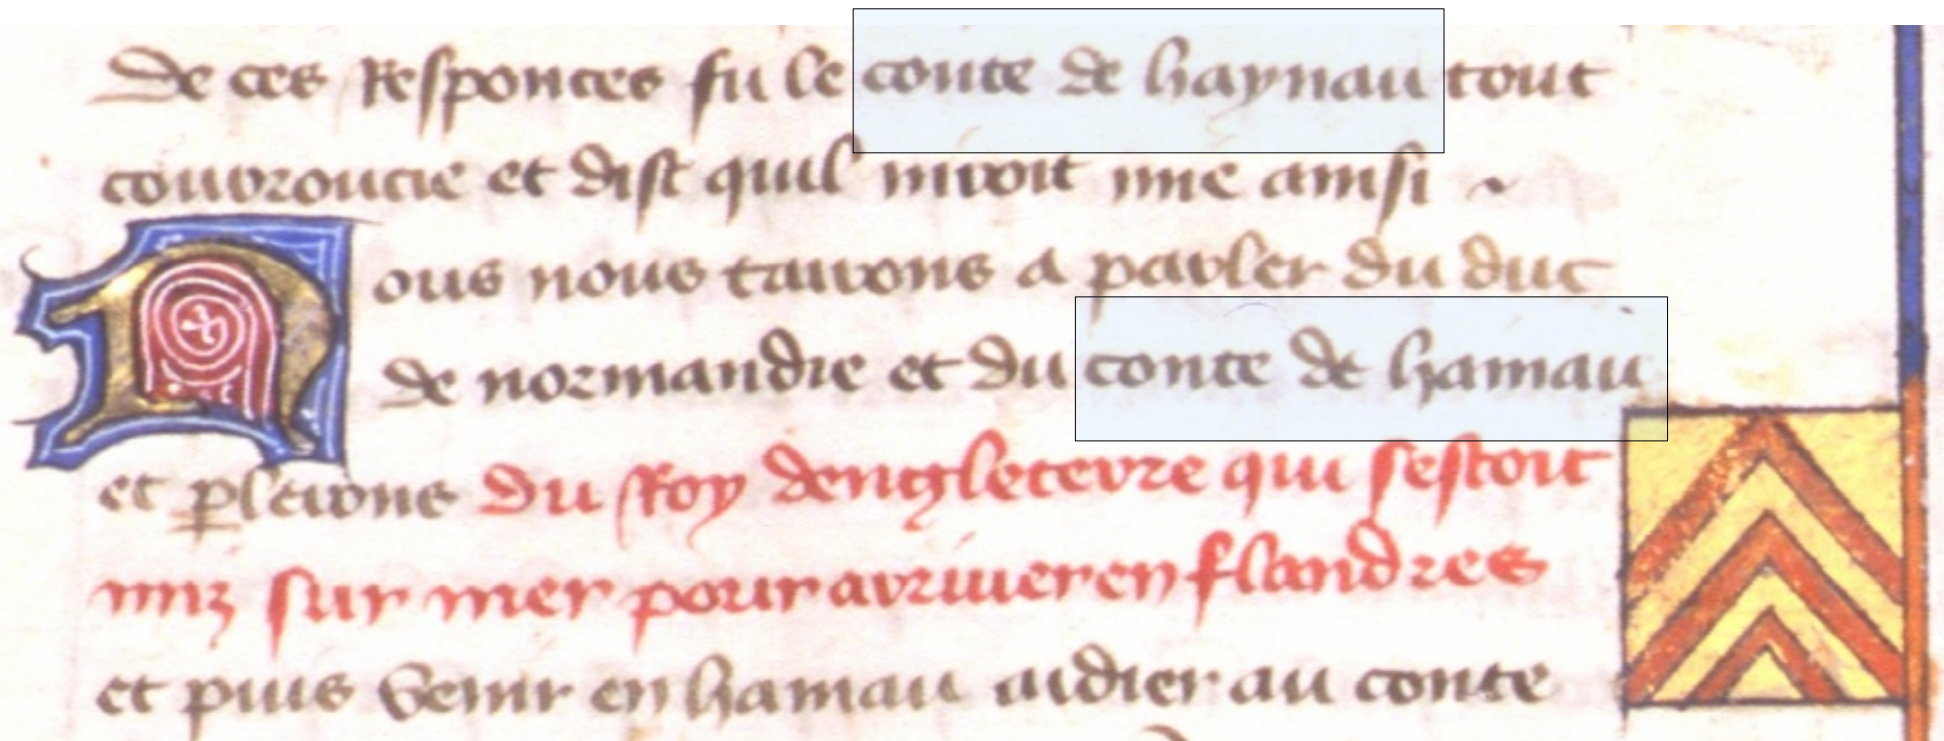 De ces responces fu le conte de haynau tout
couvroucie et dist quil niroit mie ainsi
Nous nous tairons a parler du duc
de normandie et du conte de hainau
et p̲lerons du Roy dengleterre qui sestoit
mis sur mer pour arriuer en flandres
et puis venir en hainau aidier au conte